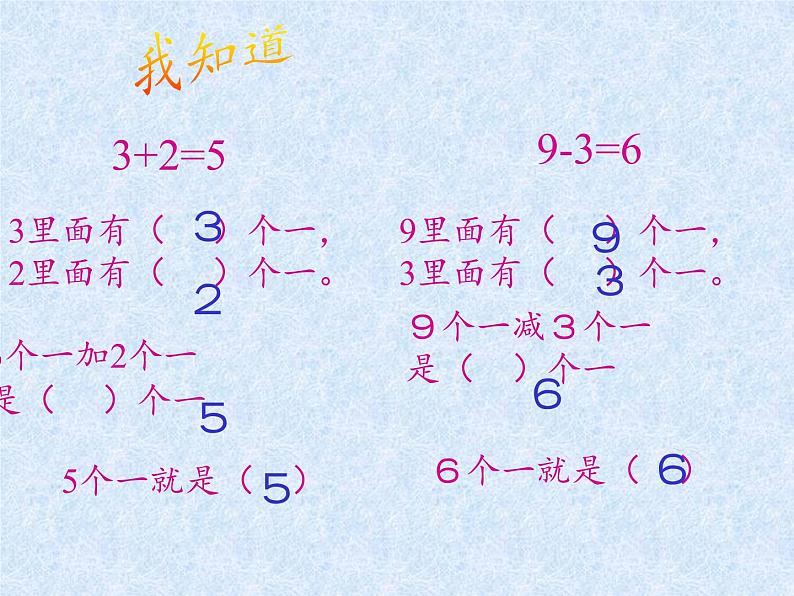 我知道
3+2=5
3里面有（3）个一，
2里面有（2）个一。
个一加2个一
是（5）个一
5个一就是（5）
9-3=6
9里面有（9）个一，
3里面有（3）个一。
９个一减３个一
是（6）个一
６个一就是（6）